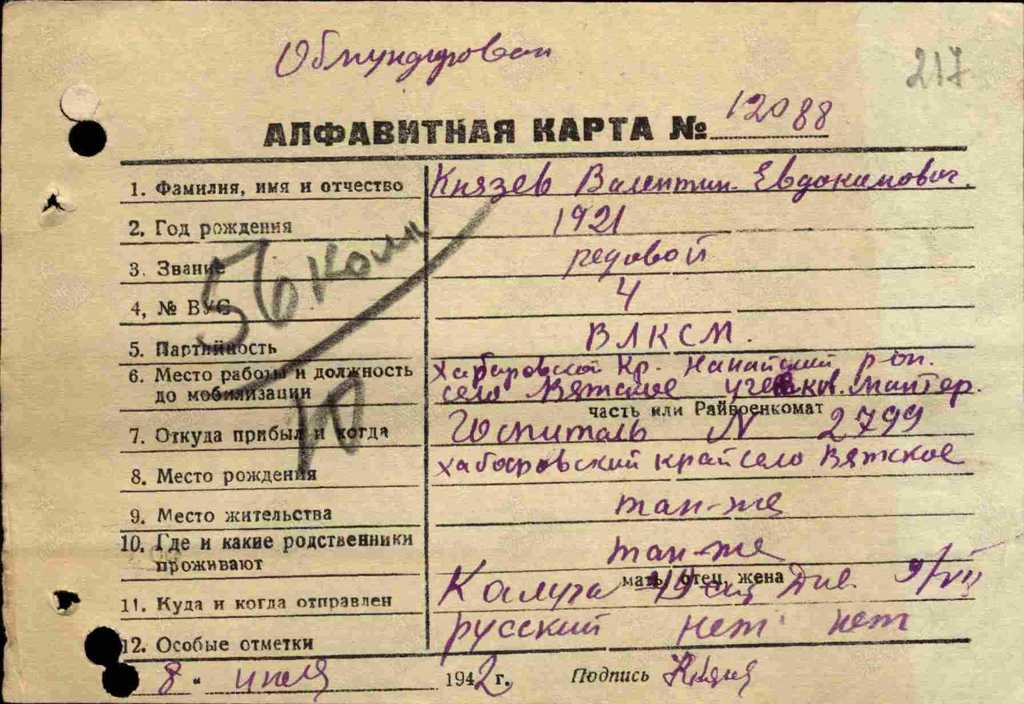 Обмундирован
217
АЛФАВИТНАЯ КАРТА № 12088
1. Фамилия, имя и отчество Князев Валентин Евдокимович.
2. Год рождения 1921
3. Звание редовой
4. № ВУС 4
5. Партийность ВЛКСМ.
6. Место работы и должность до мобилизации Хабаровской Кр. Нанайский р-он.
село Вятское
часть или Райвоенкомат
7. Откуда прибыл и когда Госпиталь N 2799
8. Место рождения Хабаровский край село Вятское
9. Место жительства там-же
10. Где и какие родственники проживают там-же
мать, отец, жена
11. Куда и когда отправлен Калуга див. 9/VII
12. Особые отметки русский нет нет
56 Калл
8 " июля 1942 г. Подпись